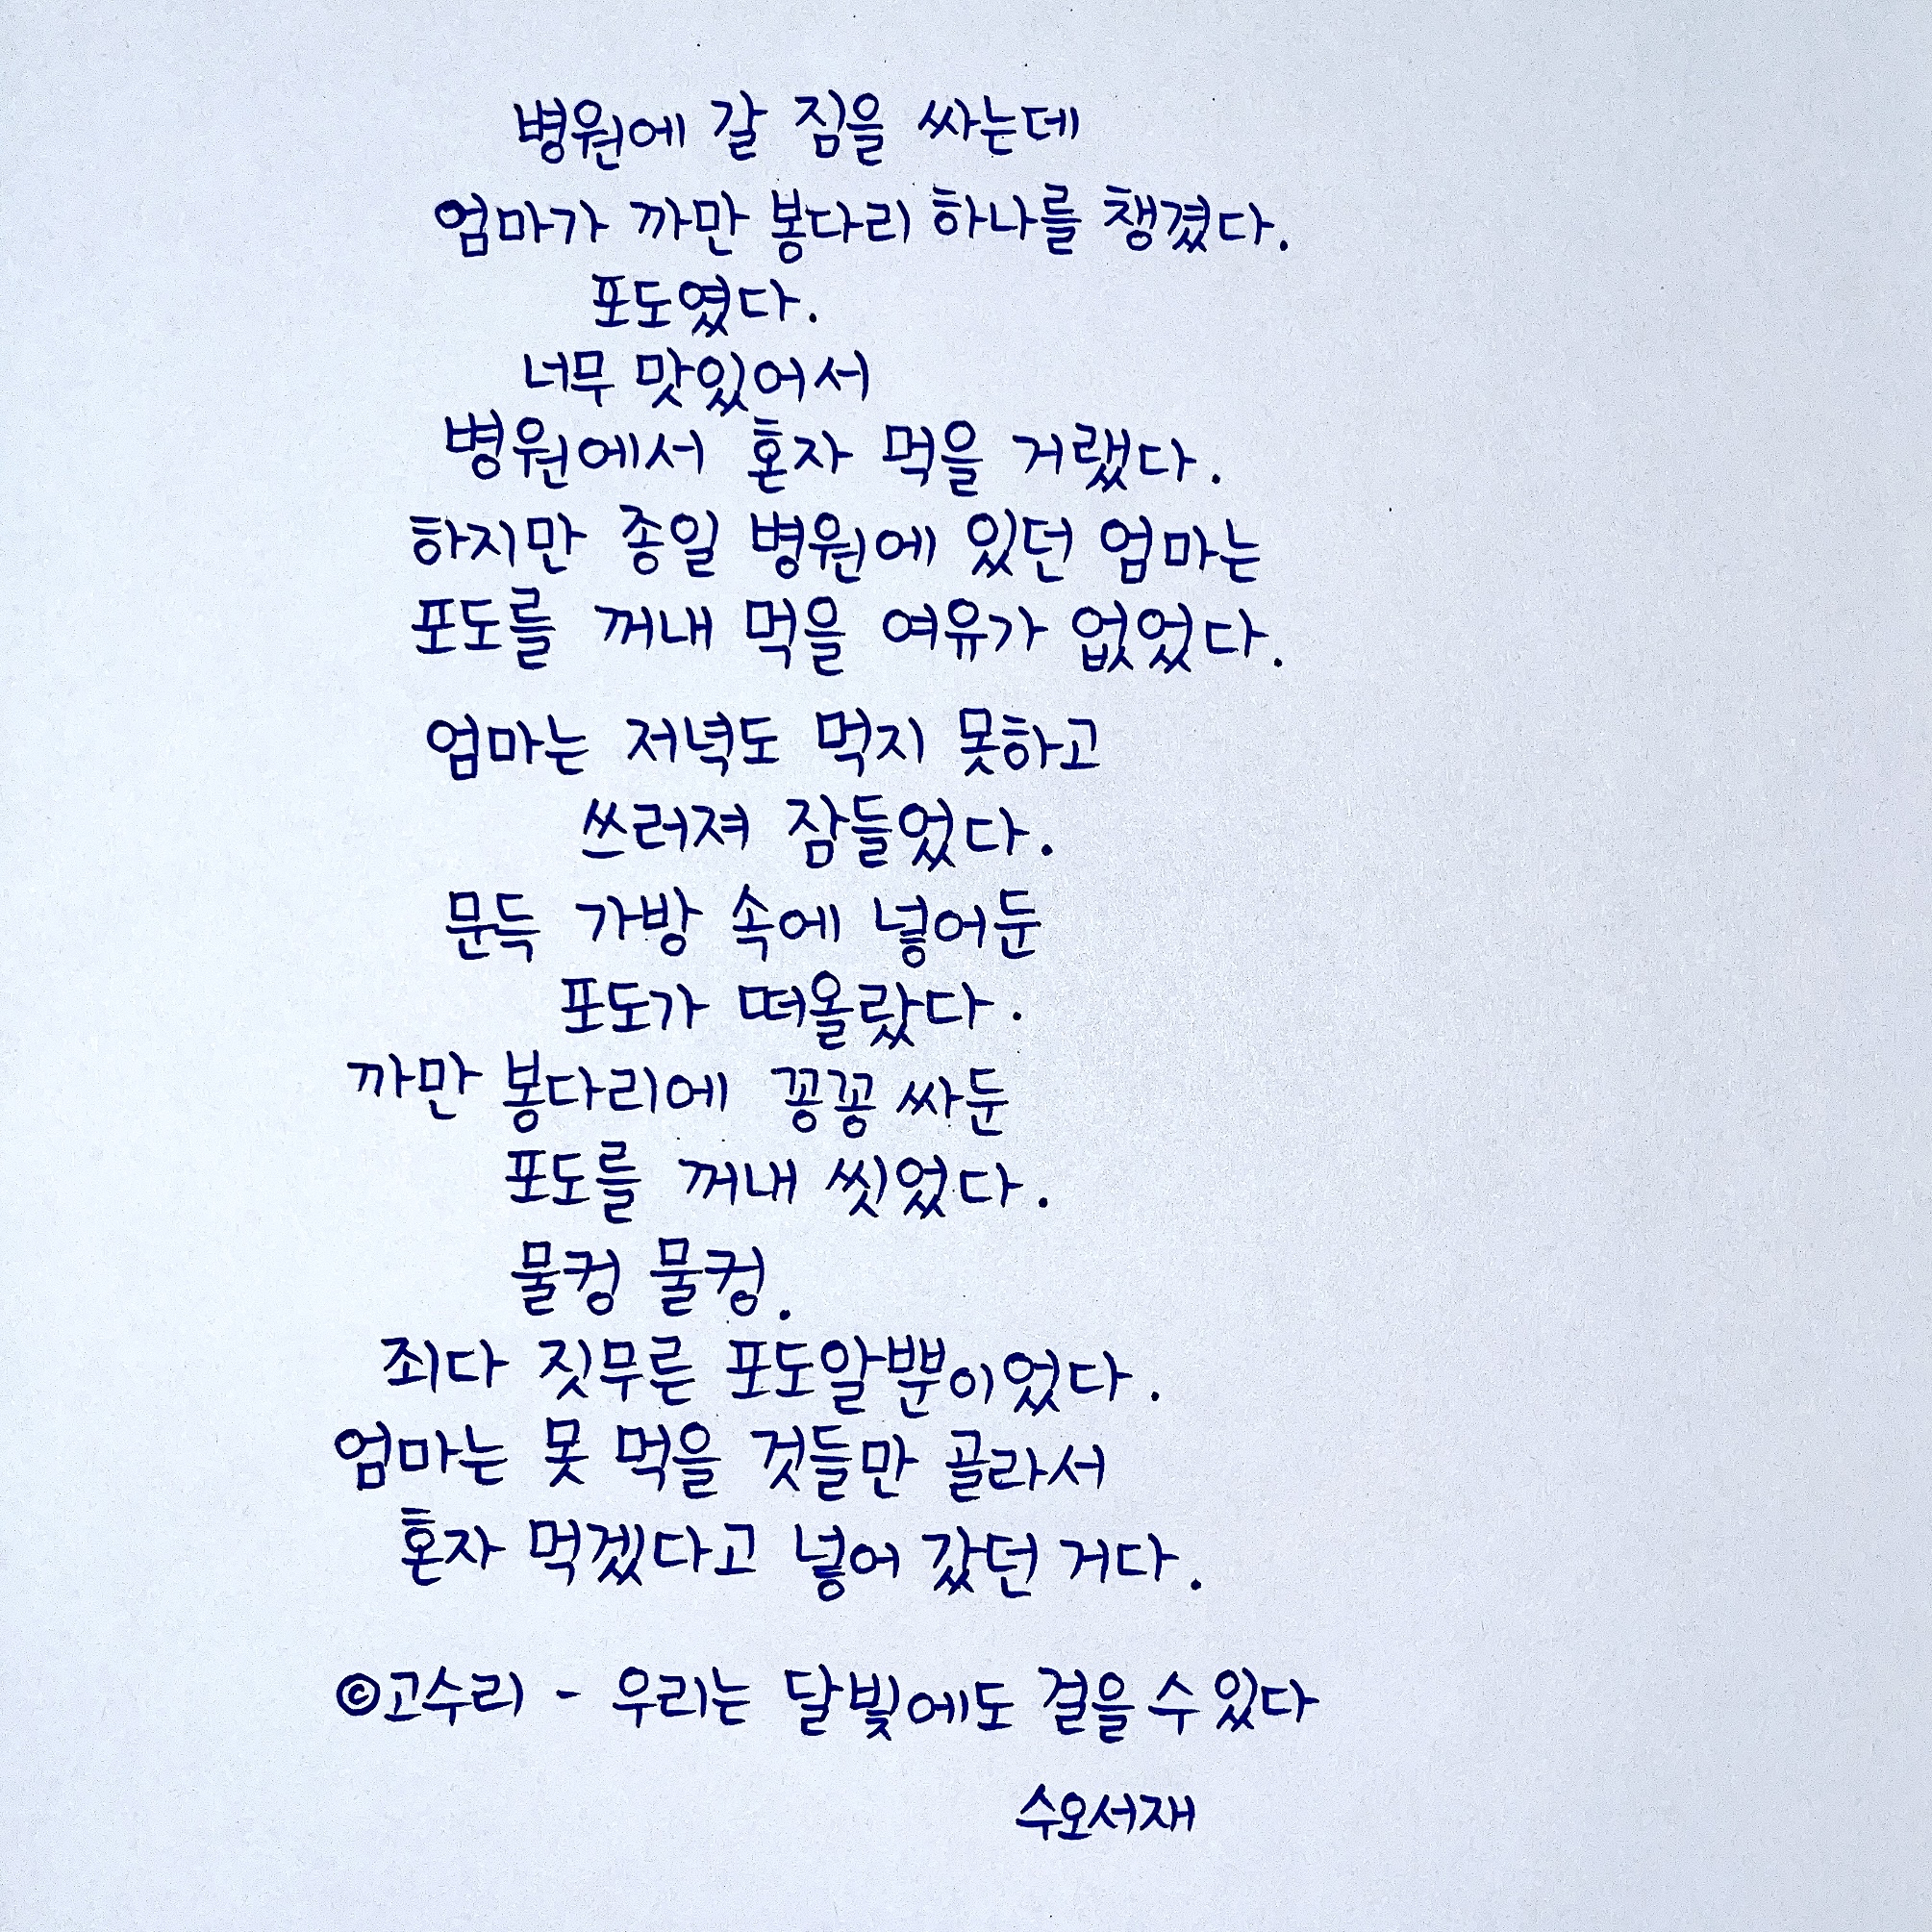 병원에 갈 짐을 싸는데
엄마가 까만 봉다리 하나를 챙겼다.
포도였다.
너무 맛있어서
병원에서 혼자 먹을 거랬다.
하지만 종일 병원에 있던 엄마는
포도를 꺼내 먹을 여유가 없었다.
엄마는 저녁도 먹지 못하고
쓰러져 잠들었다.
문득 가방 속에 넣어둔
포도가 떠올랐다.
까만 봉다리에 꽁꽁 싸둔
포도를 꺼내 씻었다.
물컹 물컹.
죄다 짓무른 포도알뿐이었다.
엄마는 못 먹을 것들만 골라서
혼자 먹겠다고 넣어 갔던 거다.
©고수리 - 우리는 달빛에도 걸을 수 있다
수오서재